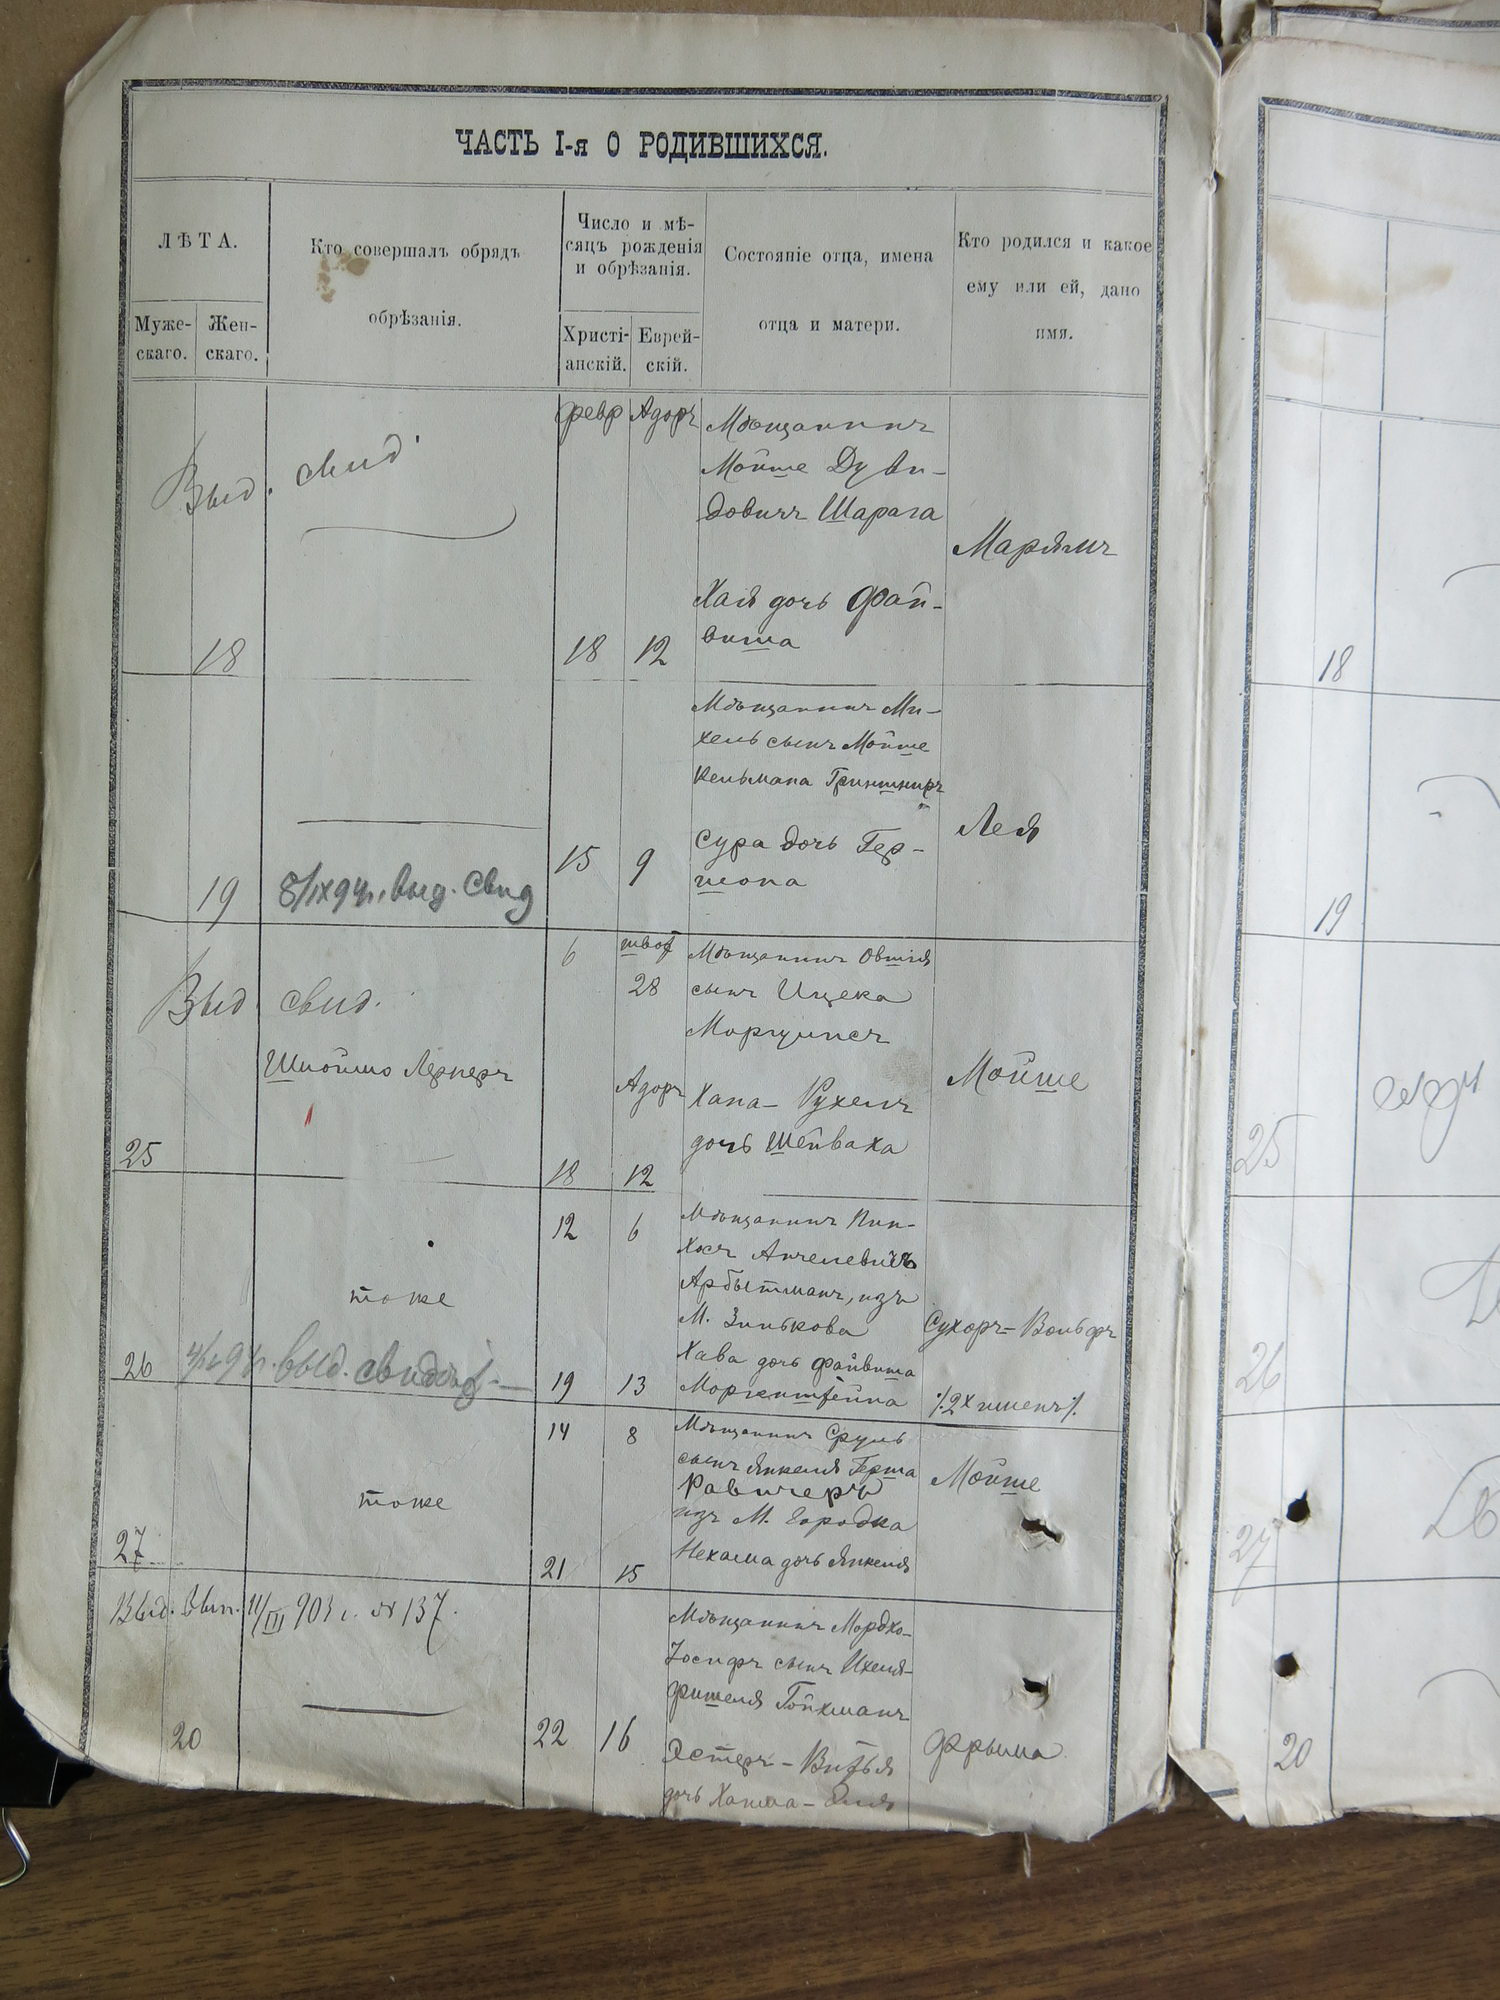 ЧАСТЬ I-я О РОДИВШИХСЯ.
ЛѢТА.
Муже-
скаго.
Жен-
скаго.
Кто совершалъ обрядъ
обрѣзанія.
Число и мѣ-
сяцъ рожденія
и обрѣзанія.
Христі-
анскій.
Еврей-
скій.
Состояніе отца, имена
отца и матери.
Кто родился и какое
ему или ей, дано
имя.
Выд. свид.
18
Февр
18
Адоръ
12
Мѣщанинъ
Мойше Дуви-
довичъ Шарага
Хая дочь Фай-
виша
Марьямъ
19
8/IX 94 г. выд. Свид
15
9
Мѣщанинъ Ми-
хель сынъ Мойше
Кельмана
Сура дочь Гер-
шона
Лея
Выд. свид.
25
Шлоймо Лернеръ
6
18
28
Адоръ
12
Мѣщанинъ Овшія
сынъ Ицека
Моргулисъ
Хана-Рухель
дочь Шейваха
Мойше
26
тоже
выд.
12
19
6
13
Мѣщанинъ Пин-
хасъ Анчелевичъ
Арбытманъ, изъ
М. Зинькова
Хава дочь Файвиша
Моргенштейна
Сухоръ-Вольфъ
27
тоже
14
21
8
15
Мѣщанинъ Сруль
сынъ Янкеля Герша
Равичеръ
изъ М. Городка
Нехама дочь Янкеля
Мойше
Выд. вып. 11/III 903 г. № 137.
20
22
16
Мѣщанинъ Мордхо-
Іосифъ сынъ Ихеля-
Фишеля Гойхманъ
Эстеръ-Витья
дочь
Фрыма
18
19
25
26
27
20